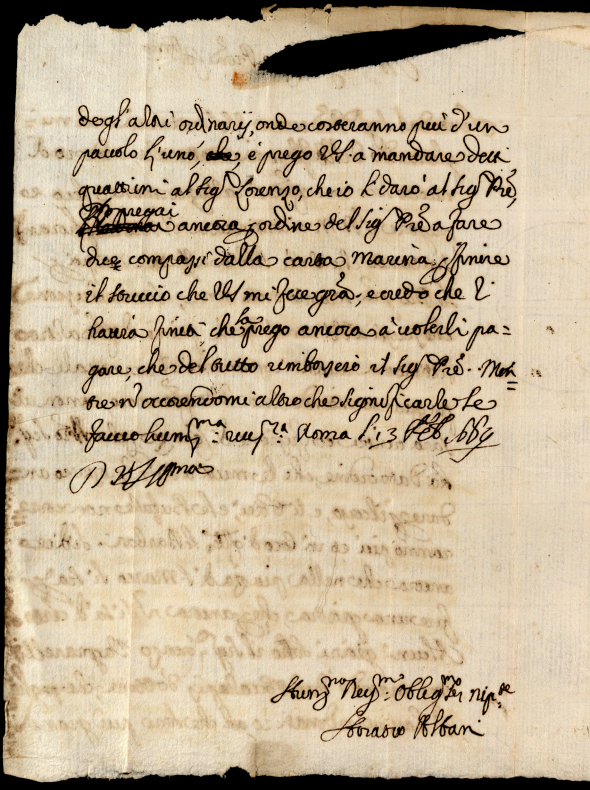 degl'altri ordinarij, onde costeranno più d'un
pavolo l'uno, che, è prego VS. a mandare detti
quattrini al Sig.r Lorenzo, che io li darò al Sig.r Pre,
Pregai ancora ordine del Sig.r Pre a fare
due compassi dalla carta Marina, finire
il stuccio che VS mi fece gra, e credo che li
havrà finiti, che la prego ancora à volerli pa=
gare, che del tutto rimborserò il Sig.r Pre. Men=
tre nõ occorrendomi altro che significarle le
faccio hum.ma riv.za Roma li 13 Feb. 1669
D VS Ill.ma
Hum.mo Oblig.mo nip.te